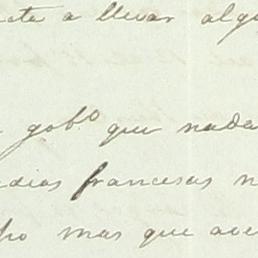 a llevar alg
gobº que nada
dias francesas n
mas que ace